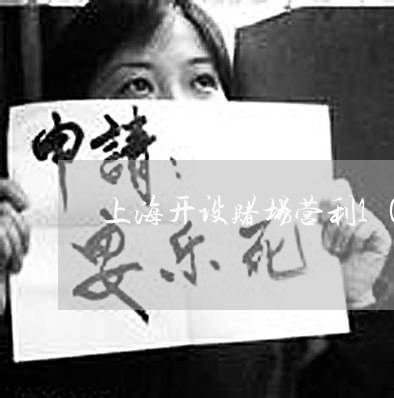 申請:
上海开设赌场营利1（
安乐死